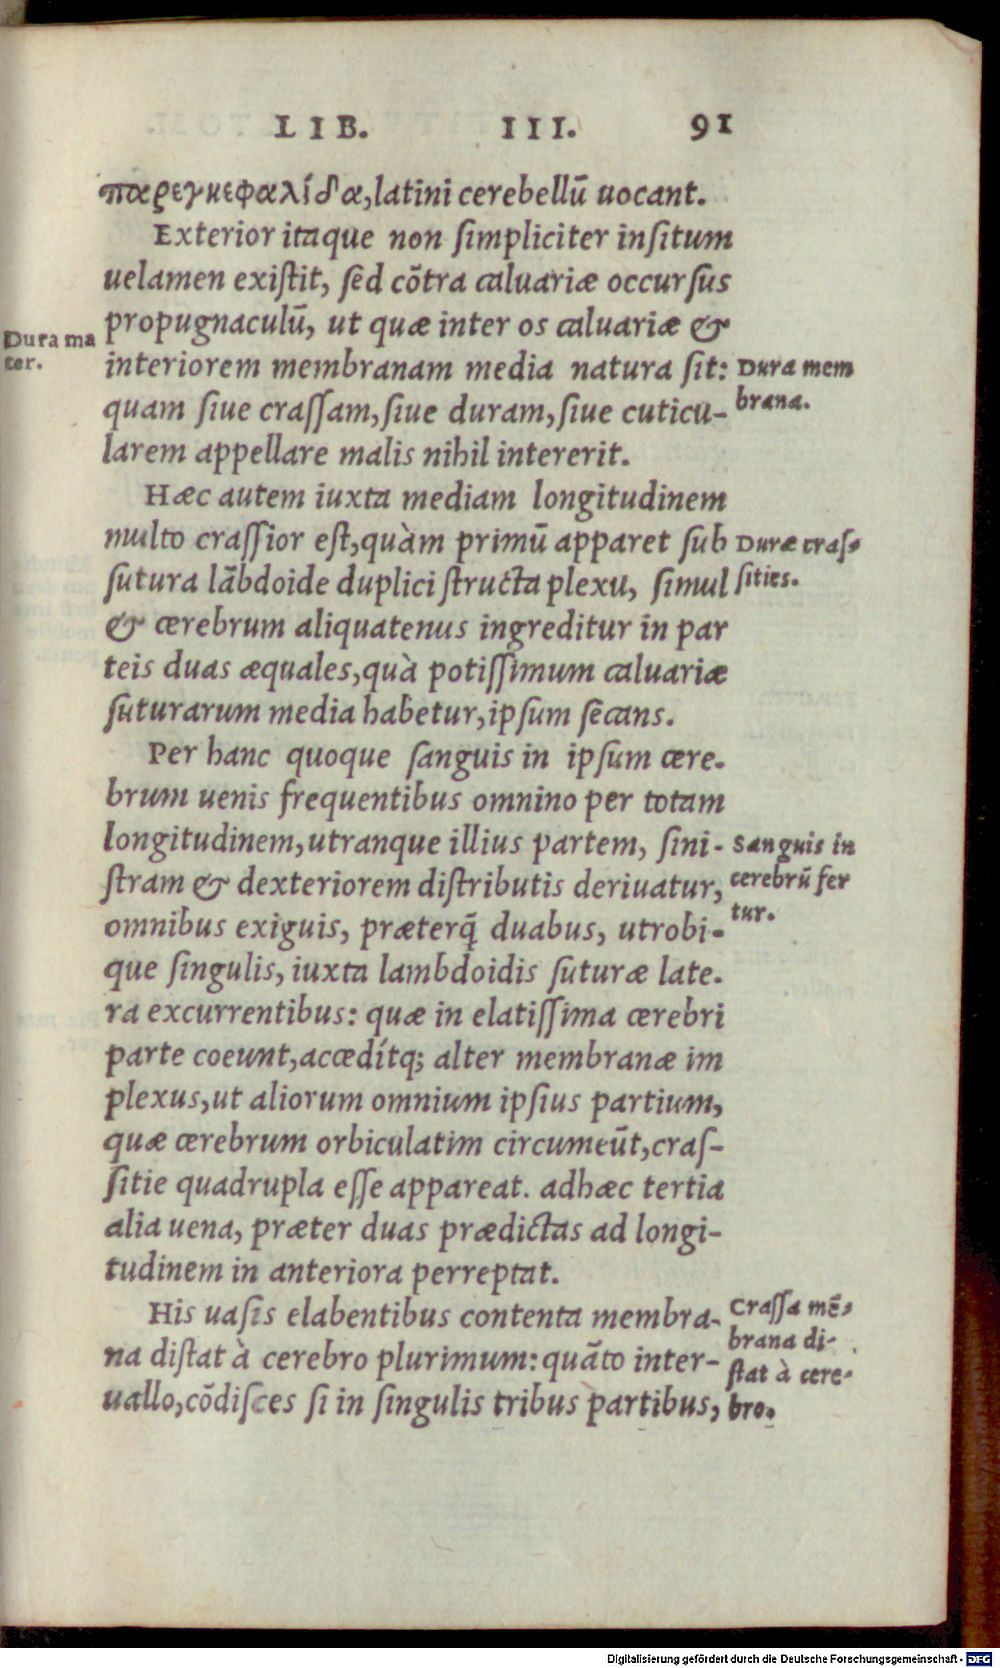 LIB. III. 91
παρεγκεφαλίδα, latini cerebellũ uocant.
Exterior itaque non ſimpliciter inſitum
uelamen exiſtit, ſed cõtra caluariæ occurſus
propugnaculũ, ut quæ inter os caluariæ &
Dura ma
ter.
interiorem membranam media natura ſit:
Dura mem
brana.
quam ſiue craſſam, ſiue duram, ſiue cuticu-
larem appellare malis nihil intererit.
Hæc autem iuxta mediam longitudinem
multo craſſior eſt, quàm primũ apparet ſub
Duræ craſ-
ſities.
ſutura lãbdoide duplici ſtructa plexu, ſimul
& cerebrum aliquatenus ingreditur in par
teis duas æquales, quà potiſſimum caluariæ
ſuturarum media habetur, ipſum ſecans.
Per hanc quoque ſanguis in ipſum cere-
brum uenis frequentibus omnino per totam
longitudinem, utranque illius partem, ſini-
Sanguis in
cerebrũ fer
tur.
ſtram & dexteriorem diſtributis deriuatur,
omnibus exiguis, præterq̃ duabus, utrobi-
que ſingulis, iuxta lambdoidis ſuturæ late-
ra excurrentibus: quæ in elatiſſima cerebri
parte coeunt, accedítq; alter membranæ im
plexus, ut aliorum omnium ipſius partium,
quæ cerebrum orbiculatim circumeũt, craſ-
ſitie quadrupla eſſe appareat. adhæc tertia
alia uena, præter duas prædictas ad longi-
tudinem in anteriora perreptat.
His uaſis elabentibus contenta membra-
Craſſa mẽ-
brana di-
ſtat à cere-
bro.
na diſtat à cerebro plurimum: quãto inter-
uallo, cõdiſces ſi in ſingulis tribus partibus,
Digitalisierung gefördert durch die Deutsche Forschungsgemeinschaft - DFG